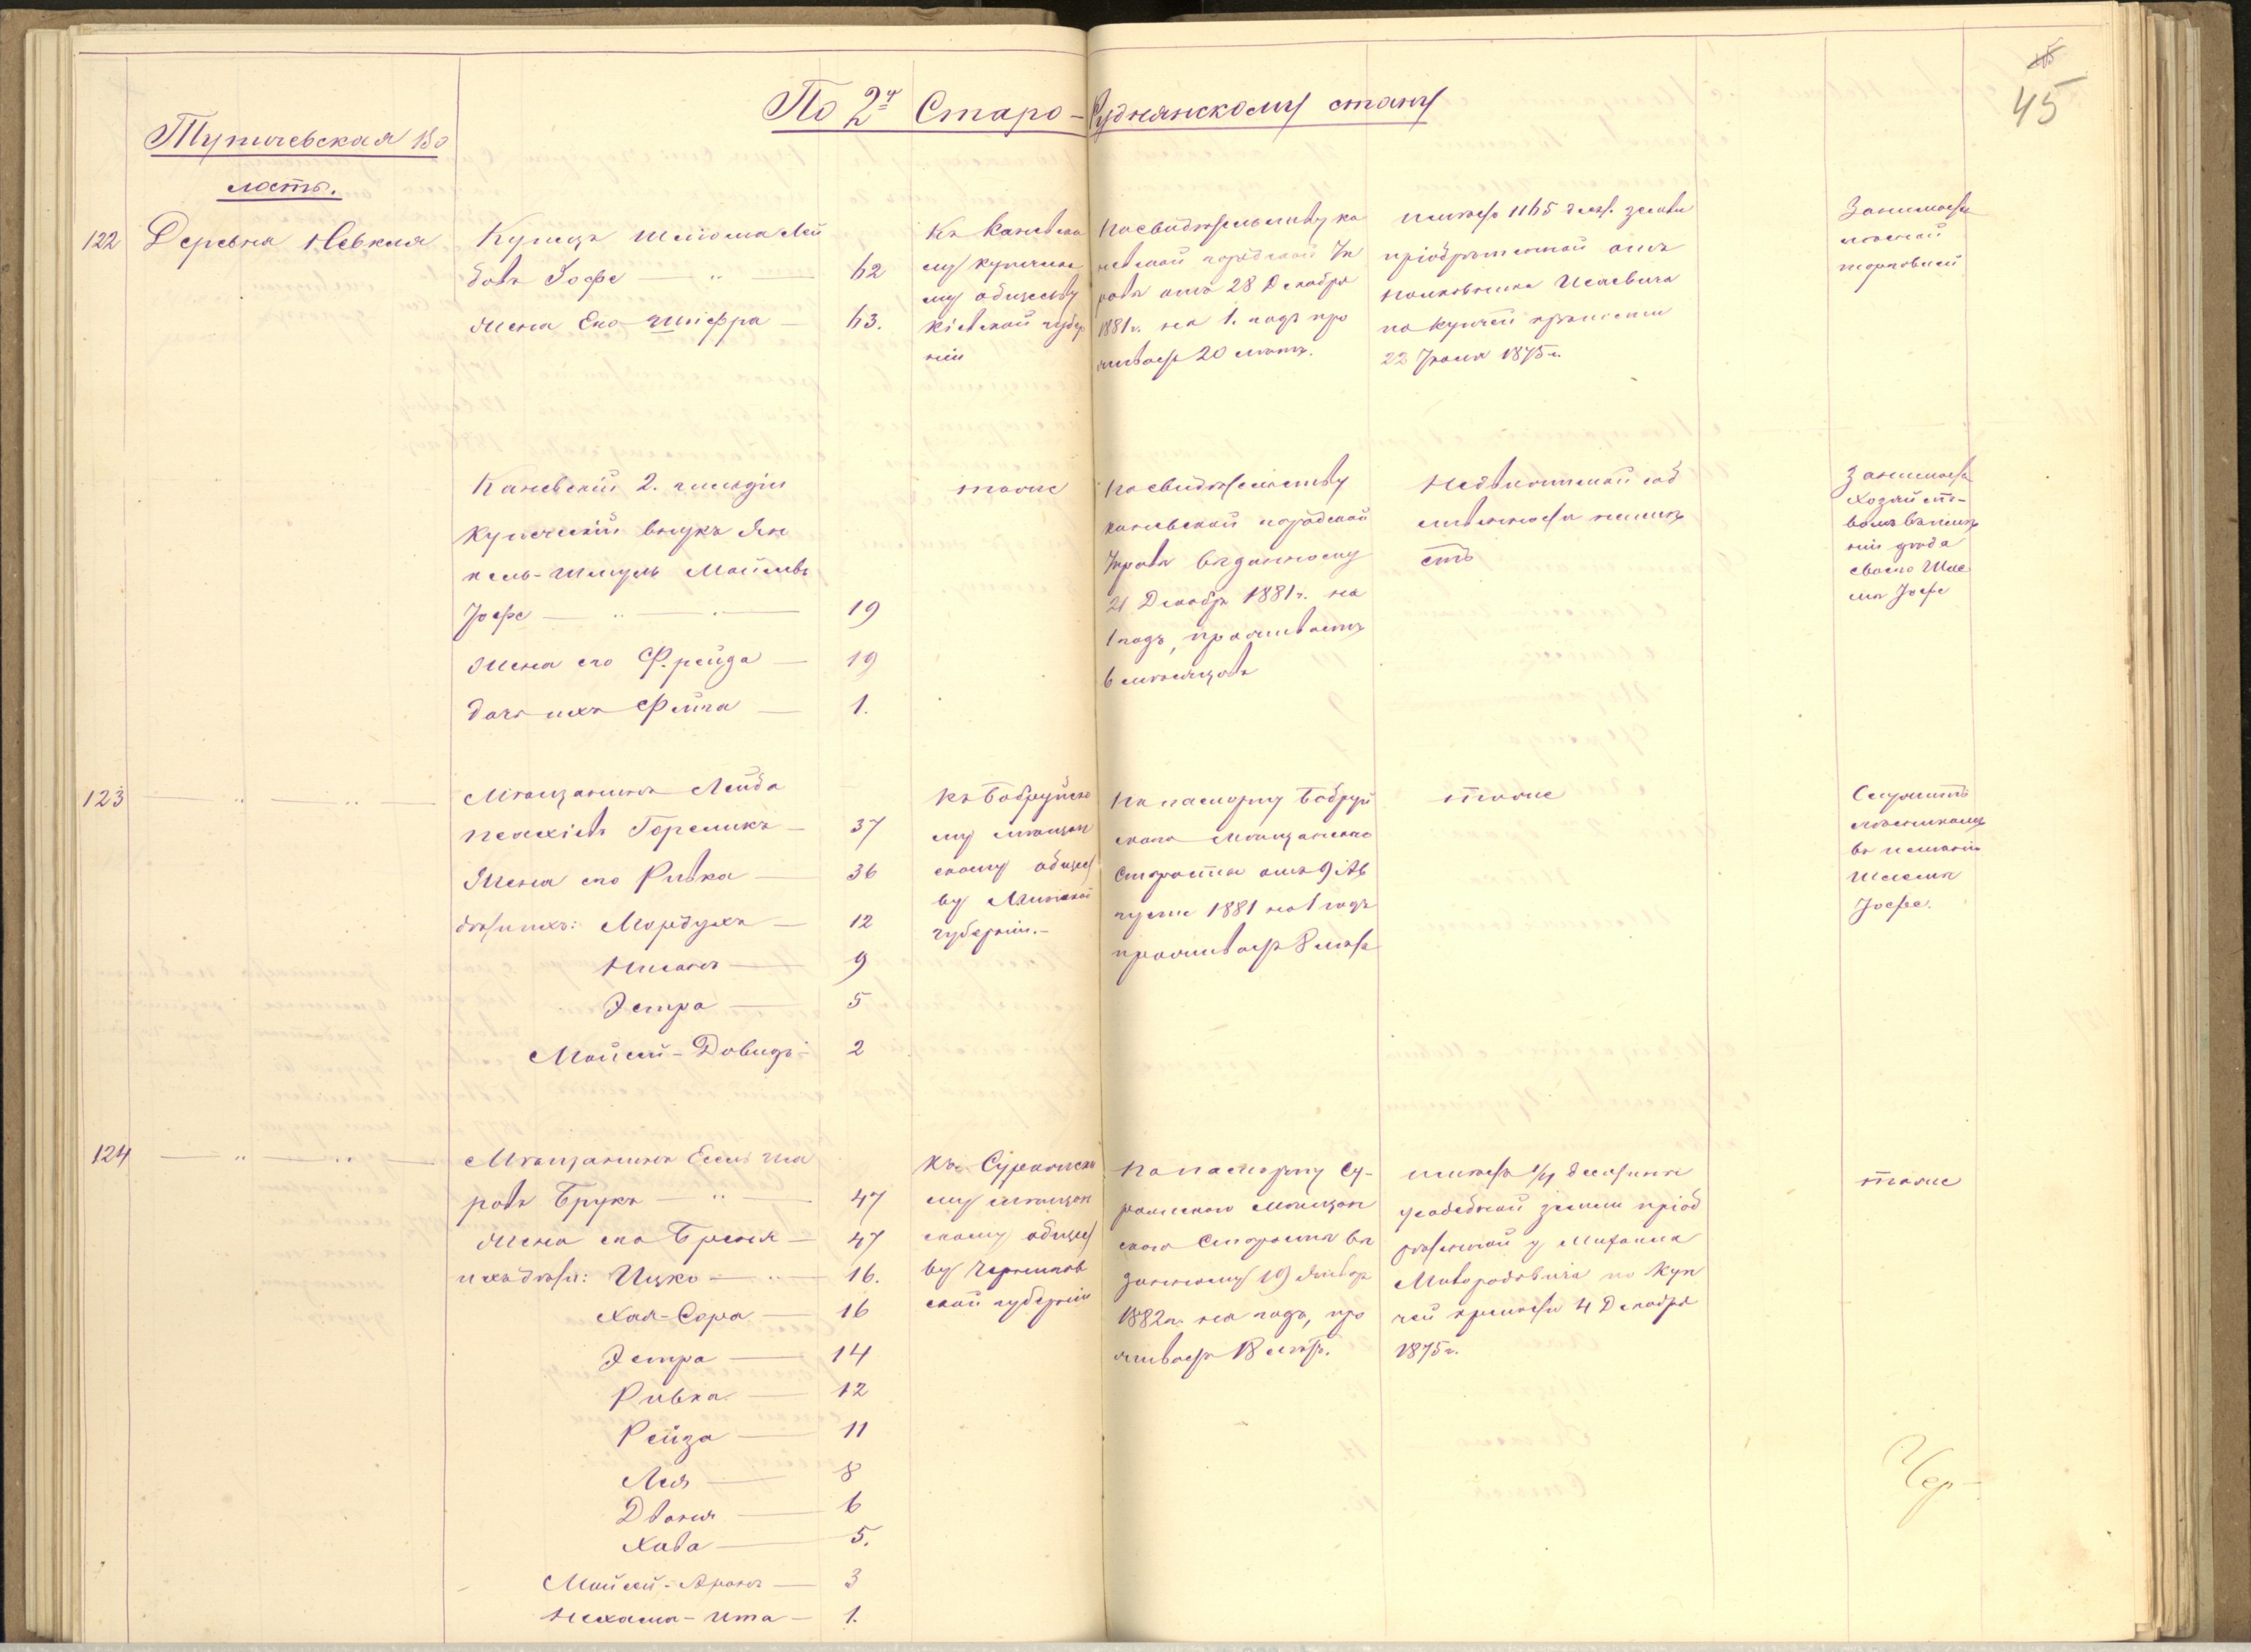 45
По 2у Старо-Руднянскому стану
Тупичевская Во
лость.
122 Деревня Невкля
Купецъ Шлiома Лей
бовъ Iофе — " — 62
Жена Его Шифра — 63.
Къ Каневско
му купеческо
му обществу
Кiевской губер
нiи
По свидѣтельству ка
невской городской Уп
равы отъ 28 Декабря
1881 г. на 1. годъ про
живаетъ 20 лѣтъ.
имѣетъ 1165 дес. земли
прiобрѣтенной отъ
полковника
по купчей крѣпости
22 1875 г.
Занимается
торговлей
Каневскiй 2. гильдiи
Купеческiй внукъ Ян
кель-Шмуль Мойсеевъ
Iофе — " — 19
Жена его Фрейда — 19
дочь ихъ Фейга — 1.
тоже
По свидѣтельству
каневской городской
Управы выданному
21 Декабр 1881 г. на
1 годъ, проживаетъ
6 мѣсяцовъ
Недвижимой соб
ственности не имѣ
етъ
Занимается
хозяйст-
вомъ въ имѣ
нiи дѣда
своего Шлe
мы Iофе
123 — " — " —
Мѣщанинъ Лейба
Гореликъ — 37
Жена его Ривка — 36
дѣти ихъ: Мордухъ — 12
Нисонъ — 9
Эстра — 5
Мойсей-Довидъ — 2
Къ Бобруйско
му мѣщан
скому общест
ву Минской
губернiи.-
По паспорту Бобруй
скаго Мѣщанскаго
Старосты отъ 9 Ав
густа 1881 на 1 годъ
проживаетъ 8 лѣтъ
тоже
Служитъ
въ имѣнiи
Шлемы
Iофе.
124 — " — " —
Мѣщанинъ
ровъ Брукъ — " — 47
Жена его — 47
ихъ дѣти: Ицко — " — 16.
Хая-Сора — 16
Эстра — 14
Ривка — 12
Рейза — 11
Лея — 8
Двоня — 6
Хава — 5.
Мойсей-Аронъ — 3
Нехама-Ита — 1.
Къ Суражско
му мѣщан
скому общест
ву Чернигов
ской губернiи
По паспорту Су-
ражскаго мѣщан
скаго Старосты вы
данному 19 Январ
1882 г. на годъ, про
живаетъ 18 лѣтъ.
имѣетъ 1/4 десятины
усадебной земли прiоб
рѣтенной у Михаила
Милорадовича по Куп
чей крѣпости 4 Декабря
1875 г.
тоже
Чер-